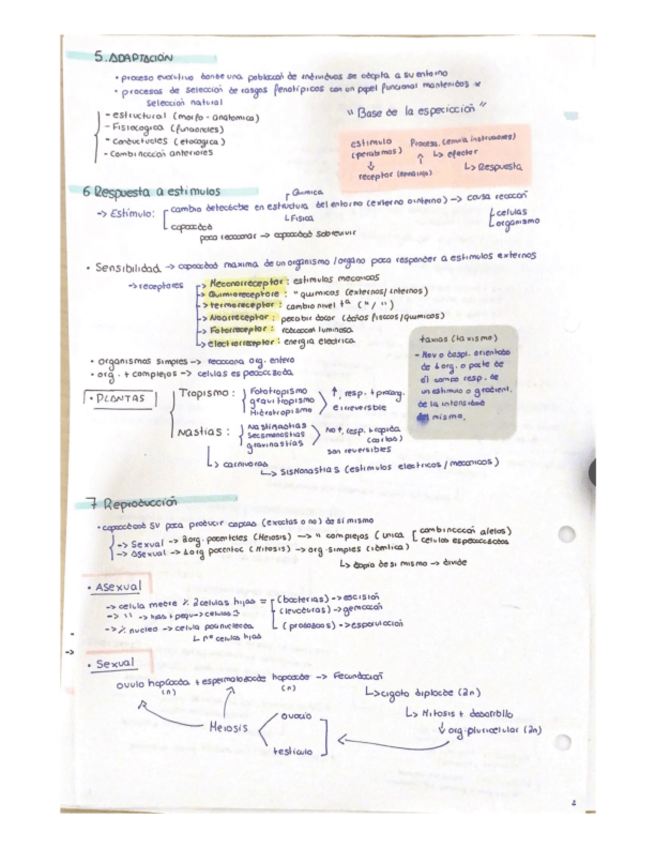 5. ADAPTACIÓN
• proceso evolutivo donde una población de individuos se adapta a su entorno
• procesos de selección de rasgos fenotípicos con un papel funcional mantenidos x
selección natural
- estructural (morfo-anatomico)
- Fisiologica (funciones)
- Conductuales (etologica)
- Combinacion anteriores
"Base de la especiación"
estimulo
(percibimos)
↓
receptor
Proceso (envia instrucciones)
↑ ↳ efector
↳ Respuesta
6 Respuesta a estimulos
Química
→ Estímulo: cambio detectable en estructura del entorno (externo o interno) → causa reacción
Física
células
organismo
capacidad
para reaccionar → capacidad sobrevivir
• Sensibilidad → capacidad maxima de un organismo/organo para responder a estimulos externos
→ receptores
→ Mecanorreceptor: estimulos mecanicos
→ Quimioreceptore: " quimicos (externos/internos)
→ termoreceptor: cambio nivel tª ("/")
→ Nocirreceptor: percibir dolor (daños fisicos/quimicos)
→ Fotorreceptor: radiacion luminosa
→ electrorreceptor: energia electrica
taxias (taxismo)
- Mov o despl. orientado
de 1 org. o parte de
él como resp. de
un estimulo o gradient.
de la intensidad
del mismo.
• organismos simples → reacciona org. entero
• org. + complejos → celulas especializada
• PLANTAS
Tropismo:
Fototropismo
gravitropismo
Hidrotropismo
↑, resp. + prolong.
e irreversible
Nastias:
Nastinastias
Seismonastias
gravinastias
No ↑, resp. + rapida
(cortas)
son reversibles
↳ carnivoras
↳ Sismonastias (estimulos electricos / mecanicos)
7 Reproducción
• capacidad SV para producir copias (exactas o no) de sí mismo
→ Sexual → 2 org. parentales (Meiosis) → " complejos (unica
combinacion alelos)
celulas especializadas
→ Asexual → 1 org parental (Mitosis) → org. simples (identica)
↳ copia de si mismo → divide
• Asexual
→ celula madre ⁒ 2 celulas hijas = (bacterias) → escisión
(levaduras) → gemación
→ ⁒ nucleo → celula polinucleada
(protozoos) → esporulación
↳ nº celulas hijas
• Sexual
ovulo haploide + espermatozoide haploide → Fecundación
(n) (n)
↳ cigoto diploide (2n)
↳ Mitosis + desarrollo
↓ org. pluricelular (2n)
Meiosis
ovario
testiculo
2